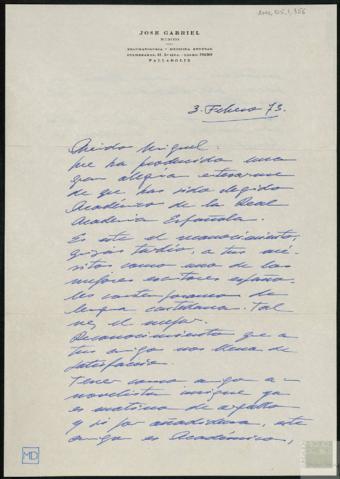 AMD,105,1,356
JOSE GABRIEL
MEDICO
TRAUMATOLOGIA - MEDICINA GENERAL
VALLADOLID
3. Febrero 73.
Querido Miguel:
me ha producido una
gran alegría enterarme
de que has sido elegido
Académico de la Real
Academia Española.
Es este el reconocimiento,
quizás tardío, a tus mé-
ritos como uno de los
mejores escritores españo-
les contemporaneos de
lengua castellana. Tal
vez, el mejor.
Reconocimiento que a
tus amigos nos llena de
satisfacción.
Tener como amigo a un
novelista insigne ya
es motivo de orgullo
y si por añadidura, este
amigo es Académico,
MD